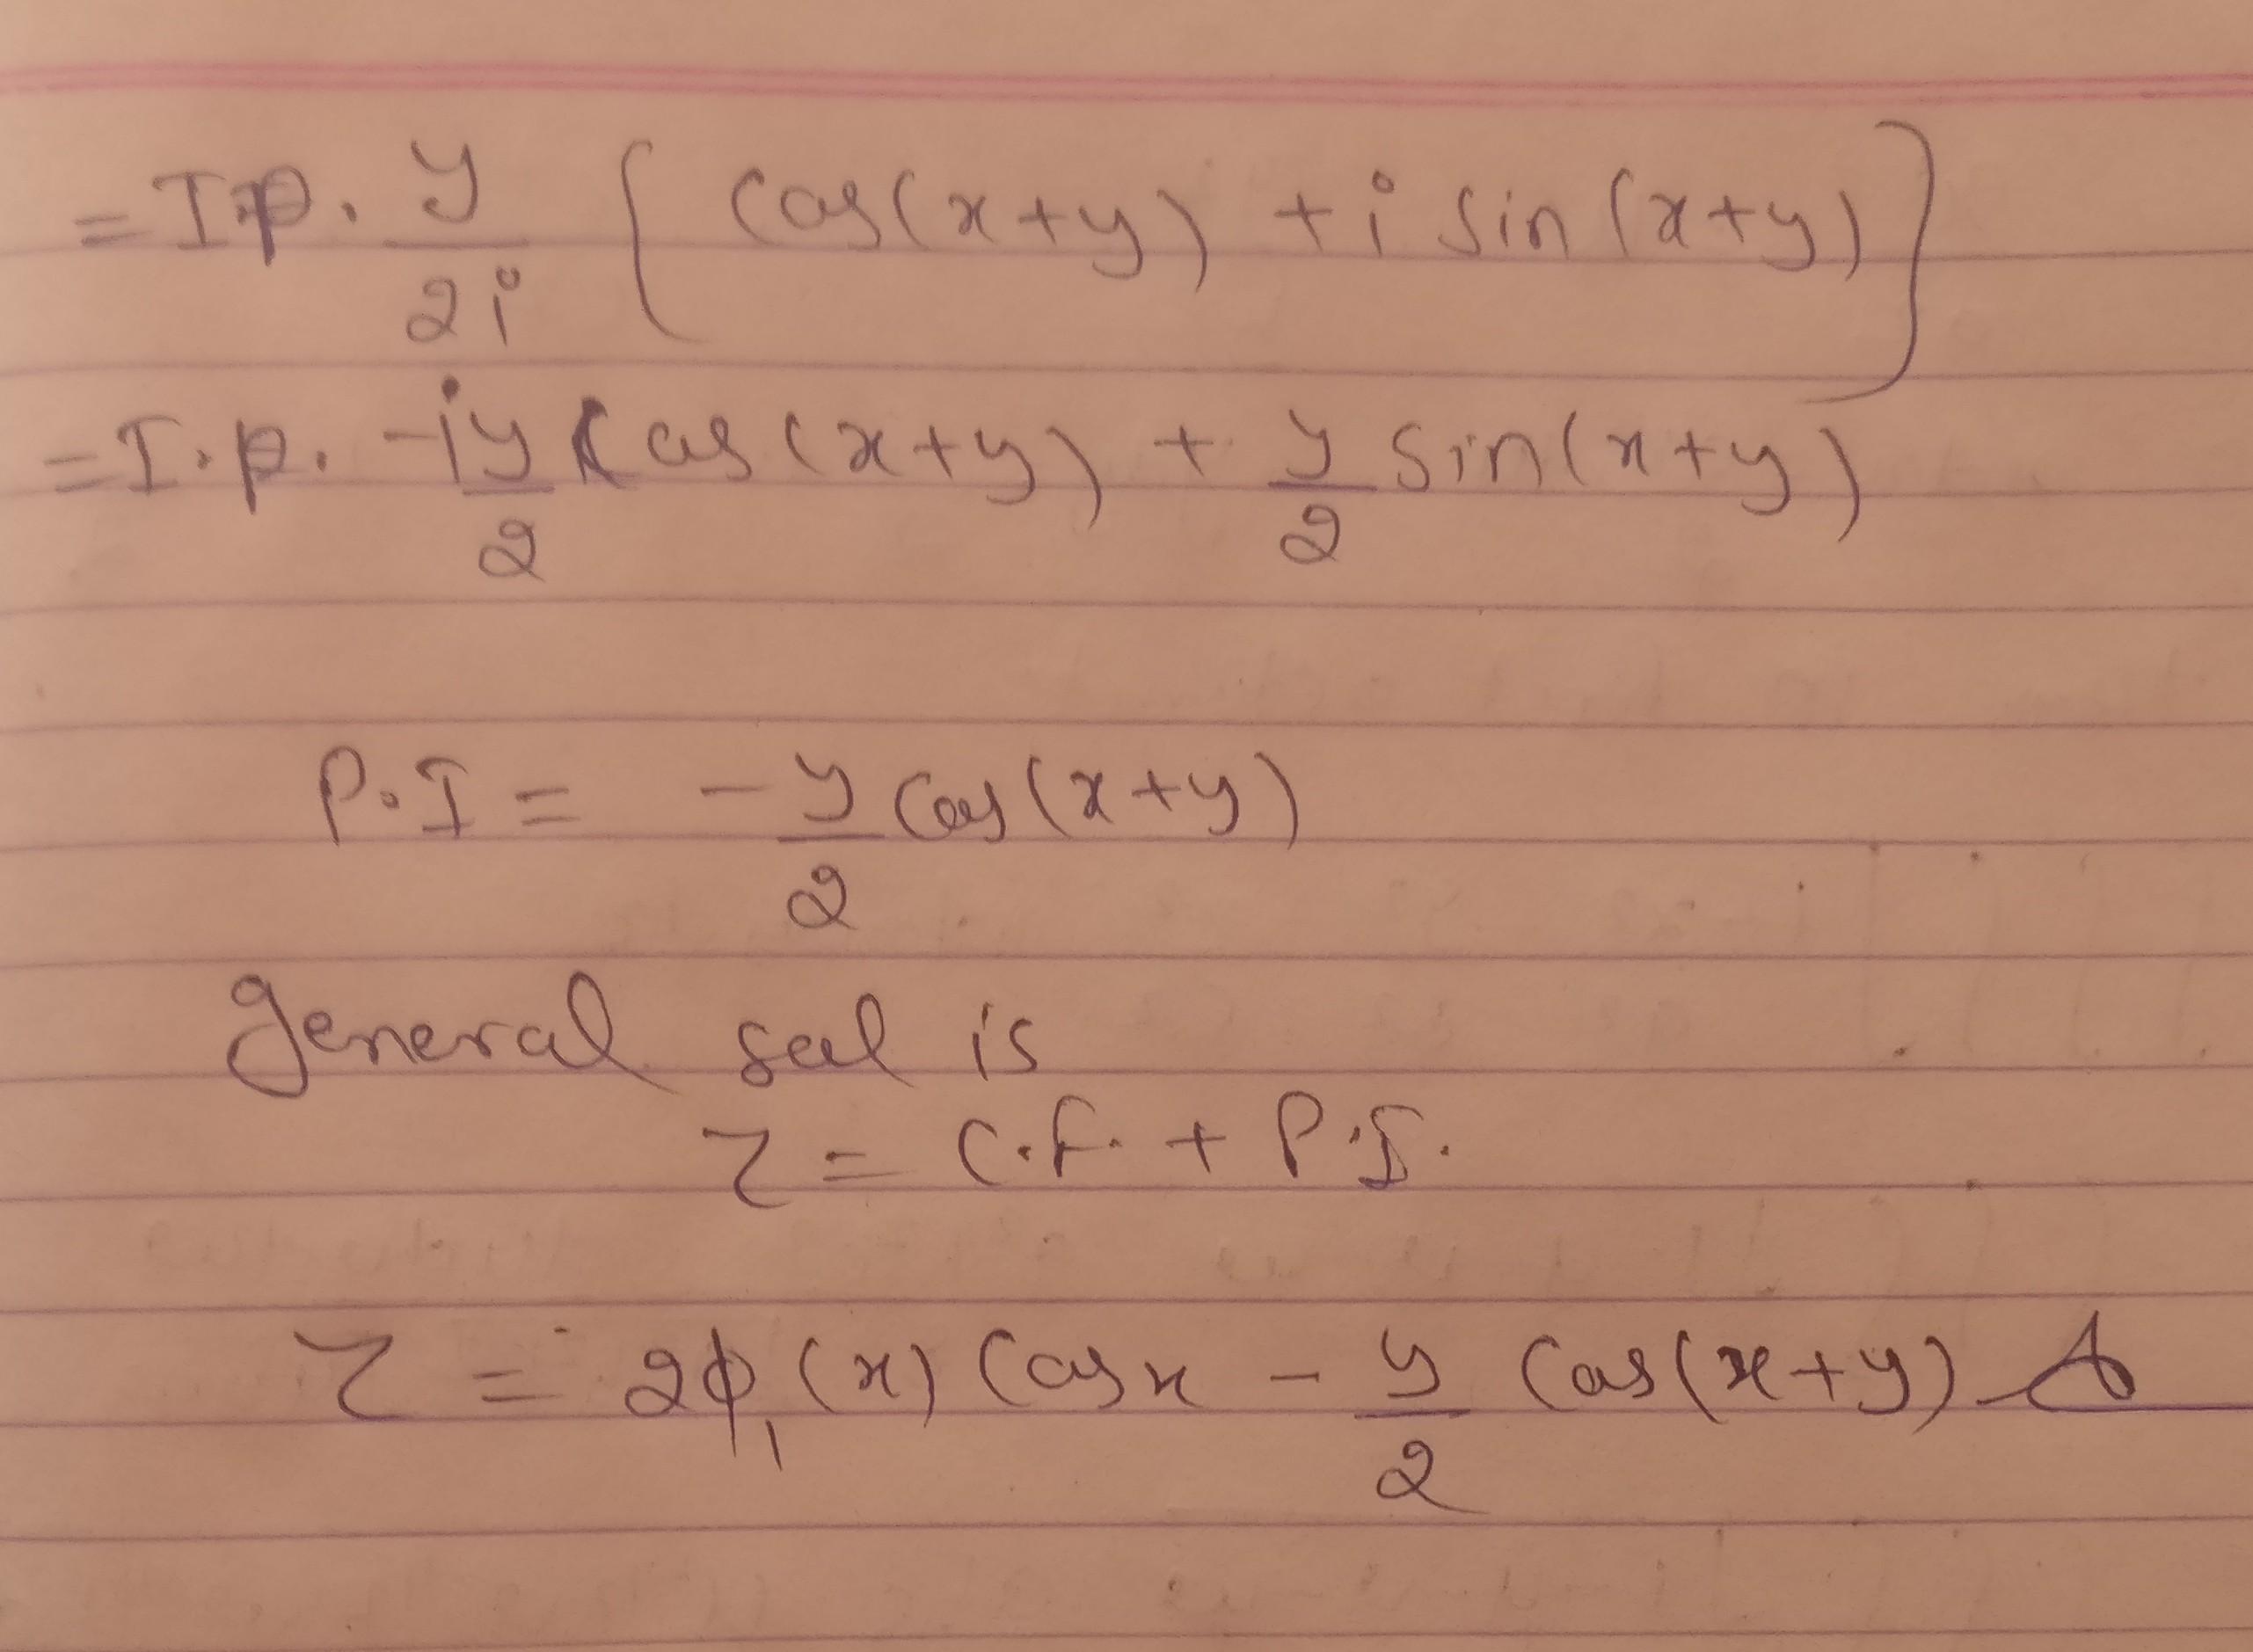 = I.p. y/2i { Cos(x+y) + i sin(x+y) }
= I.p. -iy/2 Cos(x+y) + y/2 sin(x+y)
P.I = -y/2 Cos(x+y)
general sol is
z = C.F. + P.I.
z = 2ϕ₁(x) Cosx - y/2 Cos(x+y)